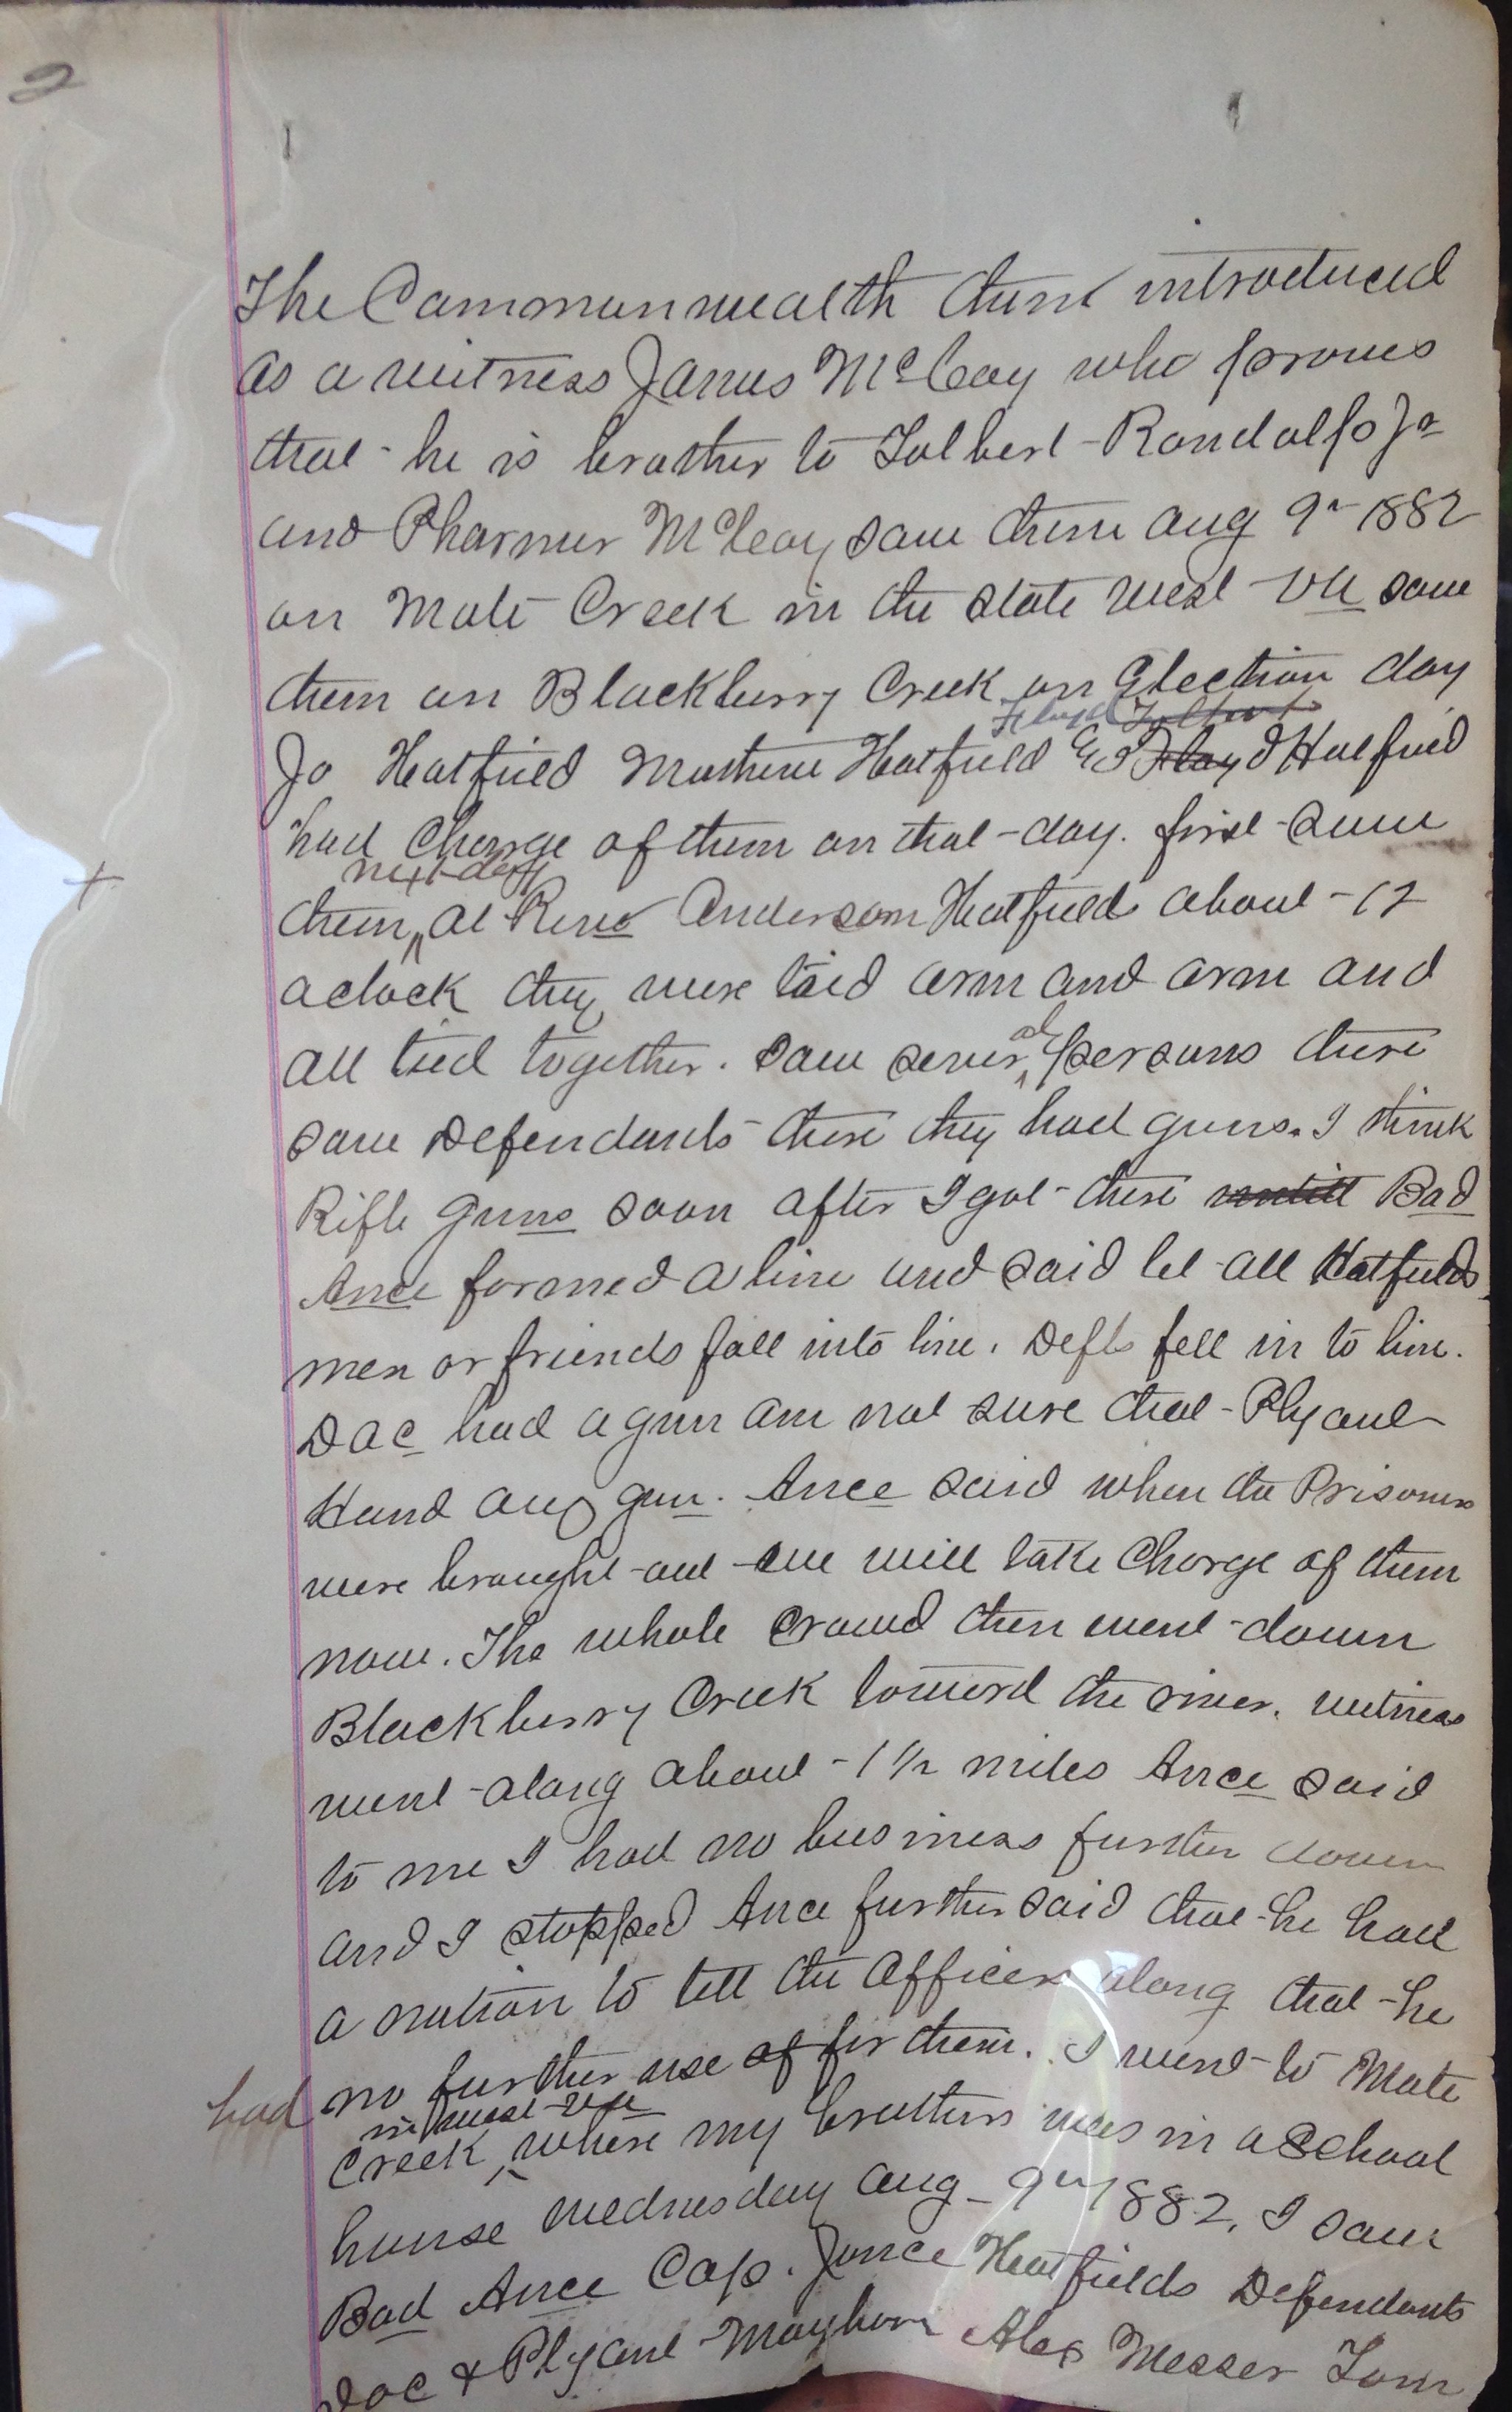 2
The Commonwealth then introduced
as a witness James McCoy who proves
that he is brother to Tolbert Randolph Jr
and Pharmer McCoy saw them Aug 9th 1882
on Mate Creek in the state West Va saw
them on Blackberry Creek on Election day
Floyd Tolbert
Jo Hatfield Mathew Hatfield & Floyd Hatfield
had charge of them on that day. first saw
next day
them at Revd Anderson Hatfields about 12
aclock they were tied arm and arm and
al
all tied together. saw sever persons there
saw Defendants there they had guns. I think
Rifle guns soon after I got there untill Bad
Ance formed a line and said let all Hatfields
men or friends fall into line. Defts fell in to line.
Doc had a gun am not sure that Plyant
Hand any gun. Ance said when the Prisoners
were brought out we will take charge of them
now. The whole crowd then went down
Blackberry Creek toward the river. witness
went along about 1 1/2 miles Ance said
to me I had no business further down
and I stopped Ance further said that he had
a notion to tell the officers along that he
had no further use of for them. I went to Mate
in West Va
Creek where my brothers was in a School
house Wednesday Aug 9th 1882, I saw
Bad Ance Cap. Jonce Hatfields Defendants
Doc & Plyant Mayhorn Alex Messer Tom